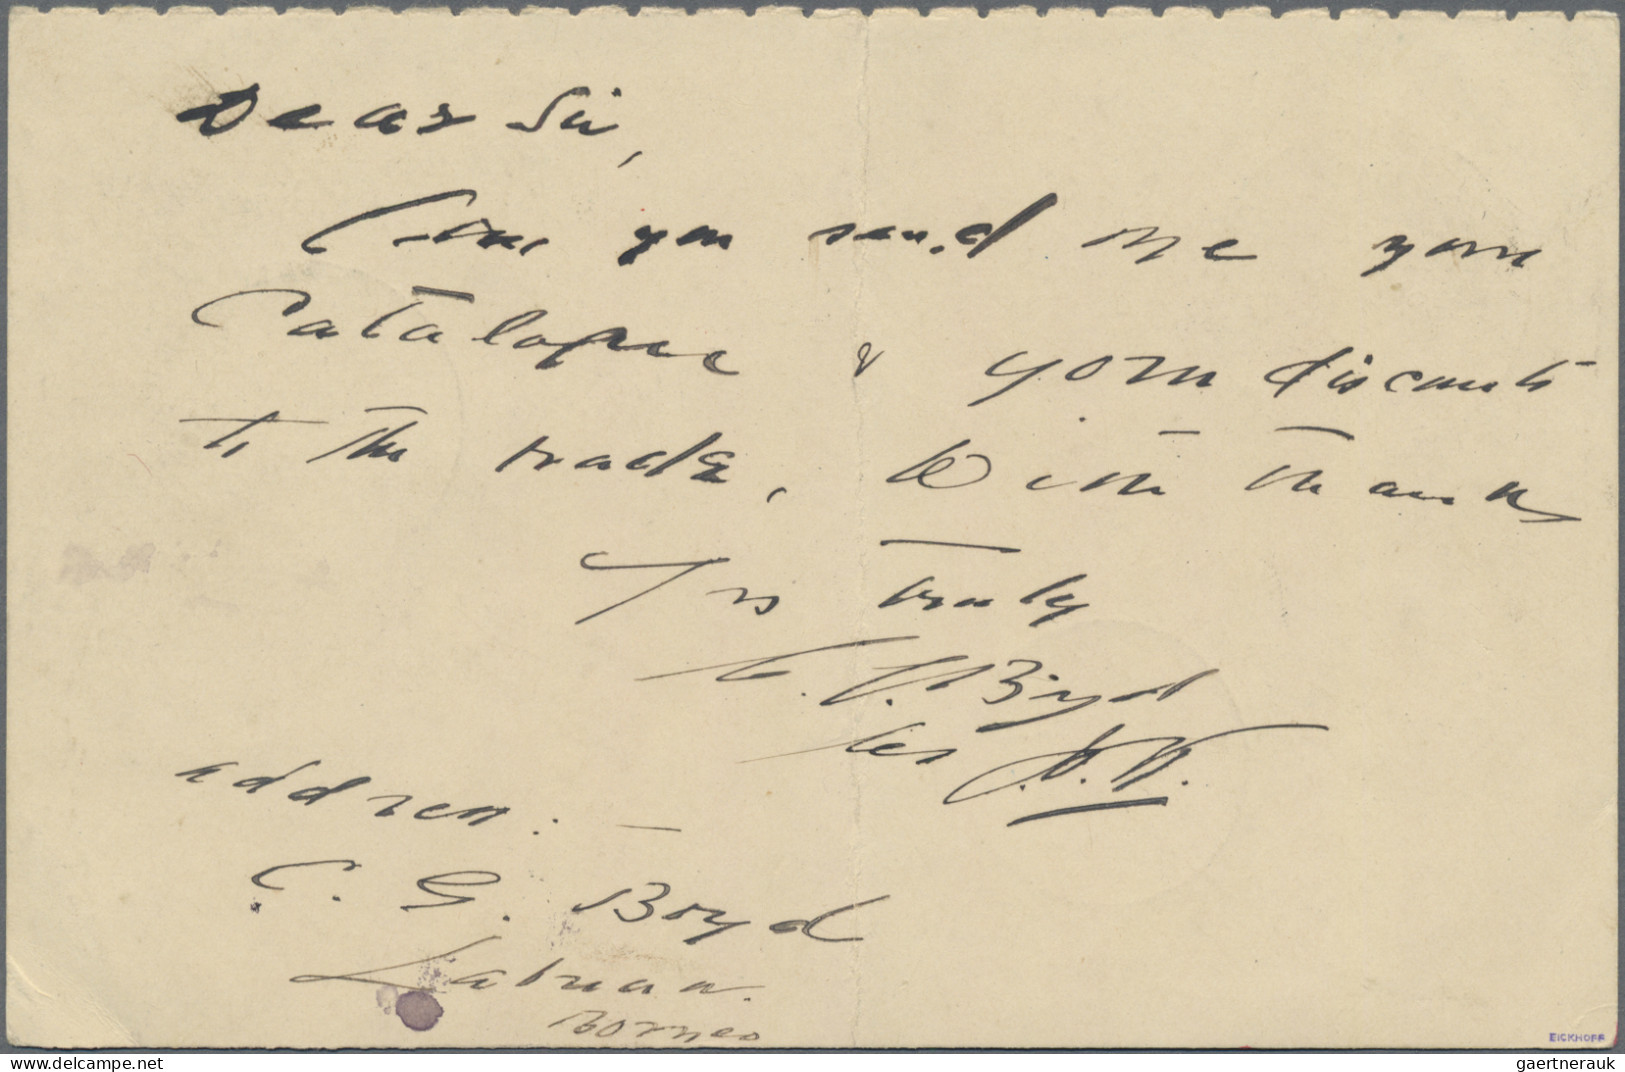 Dear Sir,
Can you send me your
Catalogue & your discounts
to the trade, With thanks
Yrs truly
C. G. Boyd
address: —
C. G. Boyd
Labuan.
Borneo
EICKHOFF
gaertnerauk